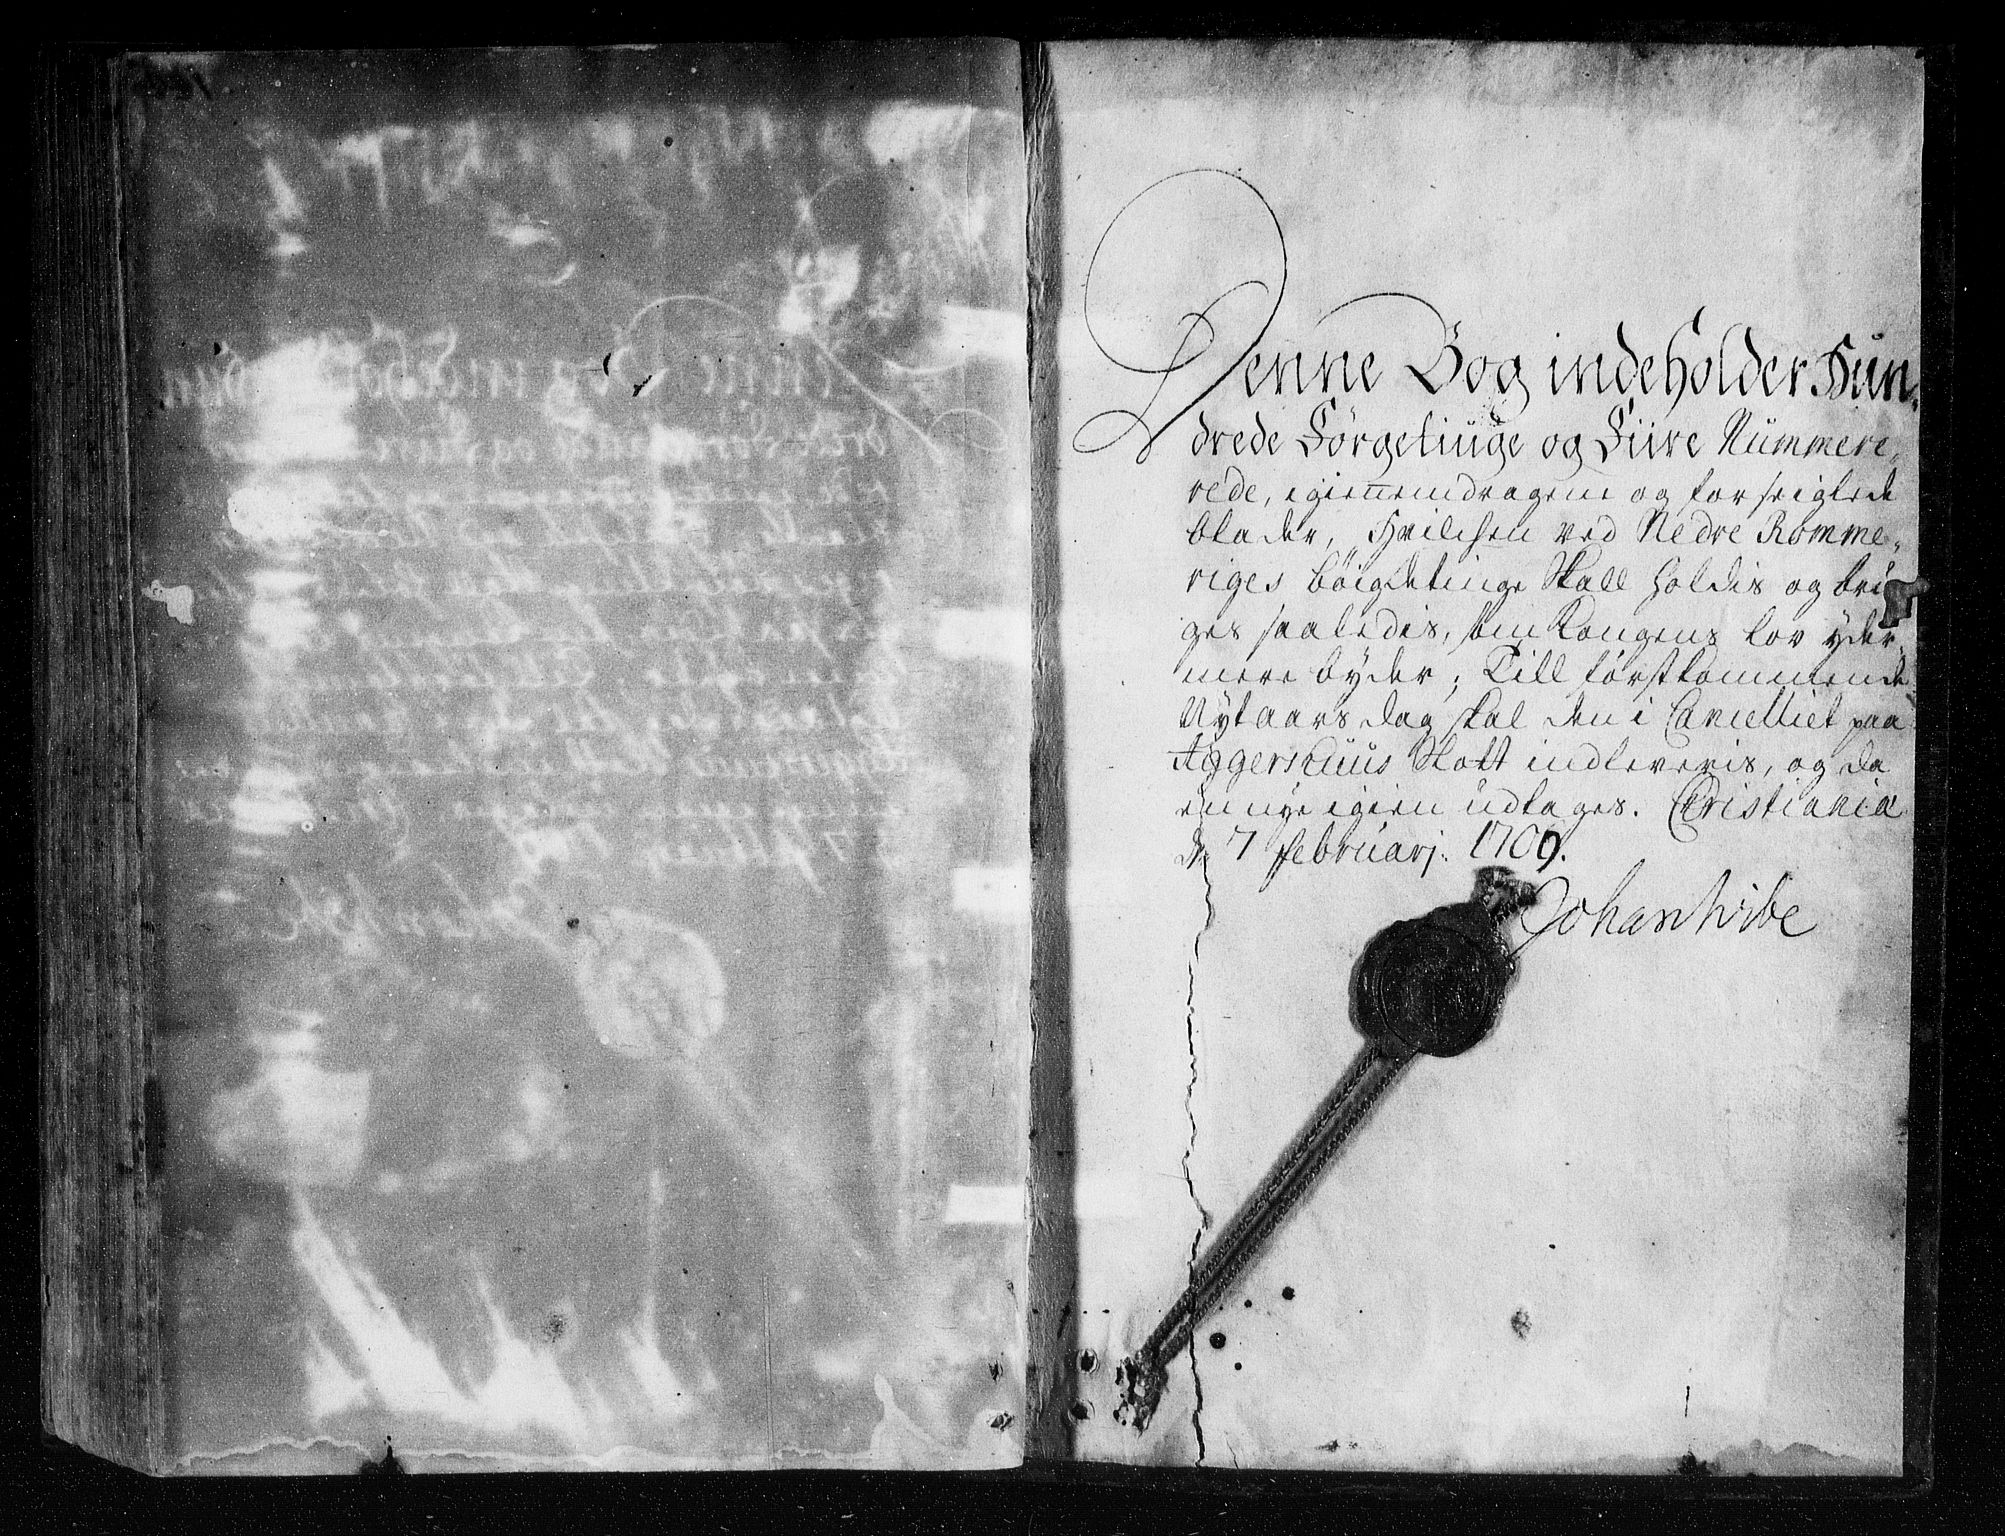 Denne Bog indeholder Hun-
drede Førgetiuge og Fiire Nummere,
rede, igiennemdragene og forseiglede
blader, Hvilchen ved Nedre Romme,
riges bøigdetinge Skall holdis og bru
ges saaledis, som Kongens lov yder,
mere byder; Till førstkommende
Nytaars dag skal den i Cancelliet paa
Aggershuus Slott indleveris, og da
en nye igien udtages. Christiania
d. 7 Februarj: 1700.
Johan Wibe